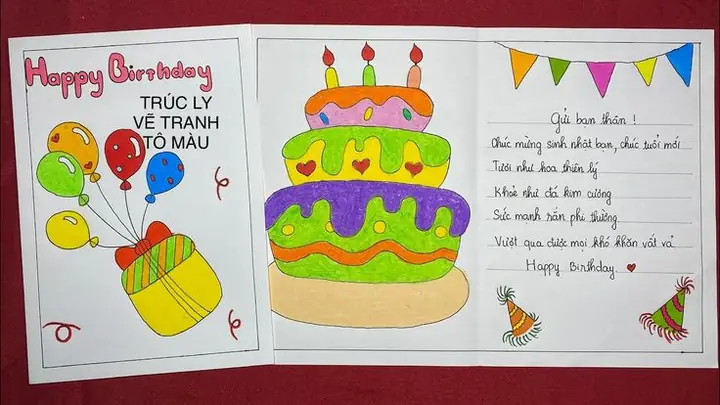 Happy Birthday
TRÚC LY
VẼ TRANH
TÔ MÀU
Gửi bạn thân !
Chúc mừng sinh nhật bạn, chúc tuổi mới
Tươi như hoa thiên lý
Khoẻ như đá kim cương
Sức mạnh rắn phi thường
Vượt qua được mọi khó khăn vất vả
Happy Birthday.